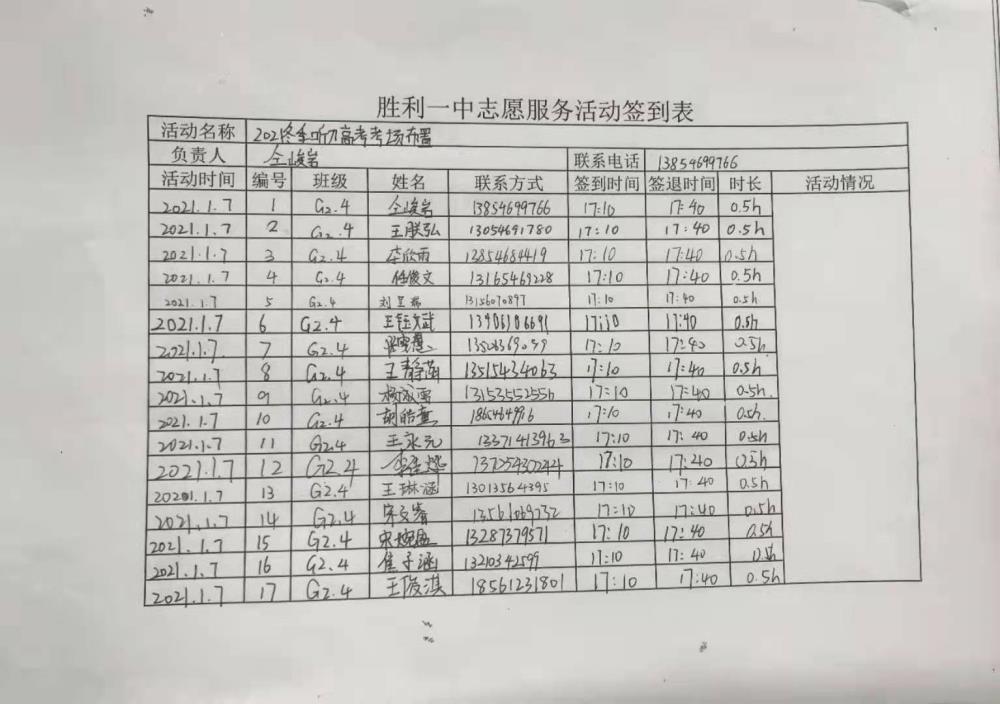 胜利一中志愿服务活动签到表
活动名称 202冬季听力高考考场布置
负责人 仝峻岩 联系电话 13854699766
活动时间 编号 班级 姓名 联系方式 签到时间 签退时间 时长 活动情况
2021.1.7 1 G2.4 仝峻岩 13854699766 17:10 17:40 0.5h
2021.1.7 2 G2.4 王朕弘 13054691780 17:10 17:40 0.5h
2021.1.7 3 G2.4 李欣雨 13854684419 17:10 17:40 0.5h
2021.1.7 4 G2.4 任俊文 13165469228 17:10 17:40 0.5h
2021.1.7 5 G2.4 刘昱 13156070897 17:10 17:40 0.5h
2021.1.7 6 G2.4 王钰斌 13906106691 17:10 17:40 0.5h
2021.1.7. 7 G2.4 17:10 17:40 0.5h
2021.1.7 8 G2.4 王静菡 13515434063 17:10 17:40 0.5h
2021.1.7 9 G2.4 13153552556 17:10 17:40 0.5h.
2021.1.7 10 G2.4 胡皓 17:10 17:40 0.5h.
2021.1.7 11 G2.4 王永元 13371413963 17:10 17:40 0.5h
2021.1.7 12 G2.4 17:10 17:40 0.5h
20201.1.7 13 G2.4 王琳涵 13013564395 17:10 17:40 0.5h
2021.1.7 14 G2.4 宋文睿 13561069732 17:10 17:40 0.5h
2021.1.7 15 G2.4 13287379571 17:10 17:40 0.5h
2021.1.7 16 G2.4 崔子涵 13210342599 17:10 17:40 0.5h
2021.1.7 17 G2.4 王俊淇 18561231801 17:10 17:40 0.5h